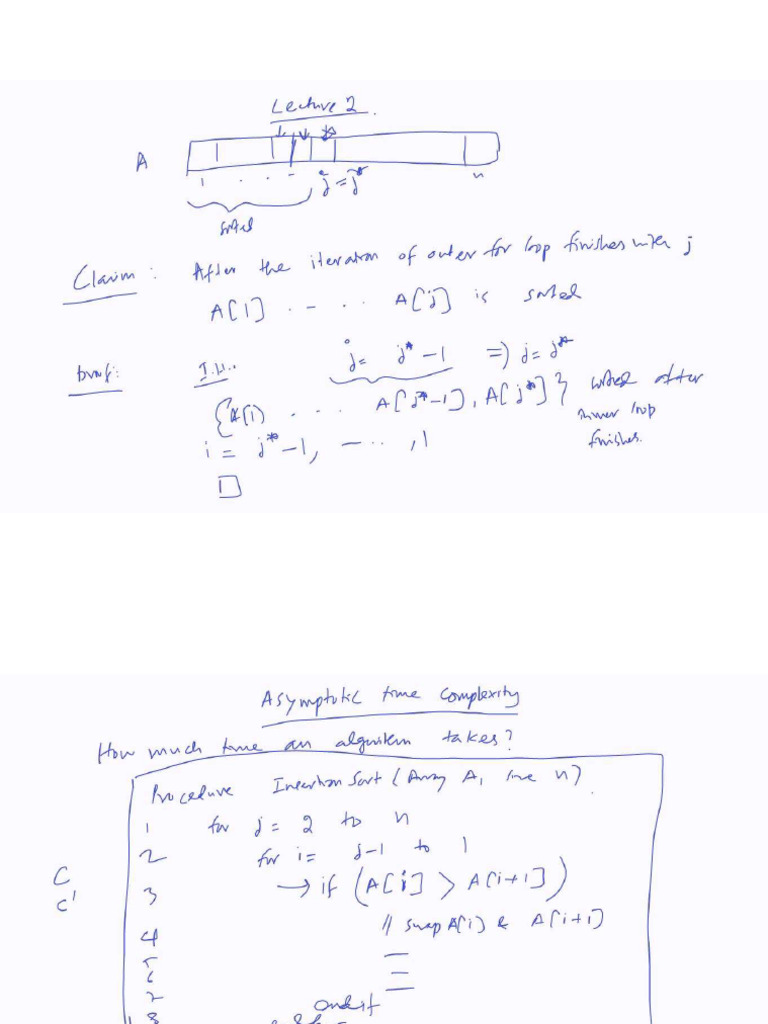 Lecture 2.
A
1 . . . - j = j* n
sorted
Claim : After the iteration of outer for loop finishes with j
A[1] . - . . A[j] is sorted
Proof: I.H.. j = j* - 1 => j = j*
{A[1] . . . A[j*-1], A[j*]} sorted after
inner loop
finishes.
i = j* - 1, - . . , 1
□
Asymptotic time complexity
How much time an algorithm takes?
Procedure Insertion Sort (Array A, int n).
1 for j = 2 to n
2 for i = j-1 to 1
C
C'
3 → if (A[i] > A[i+1])
4 // swap A[i] & A[i+1]
5
6
7
8 endif